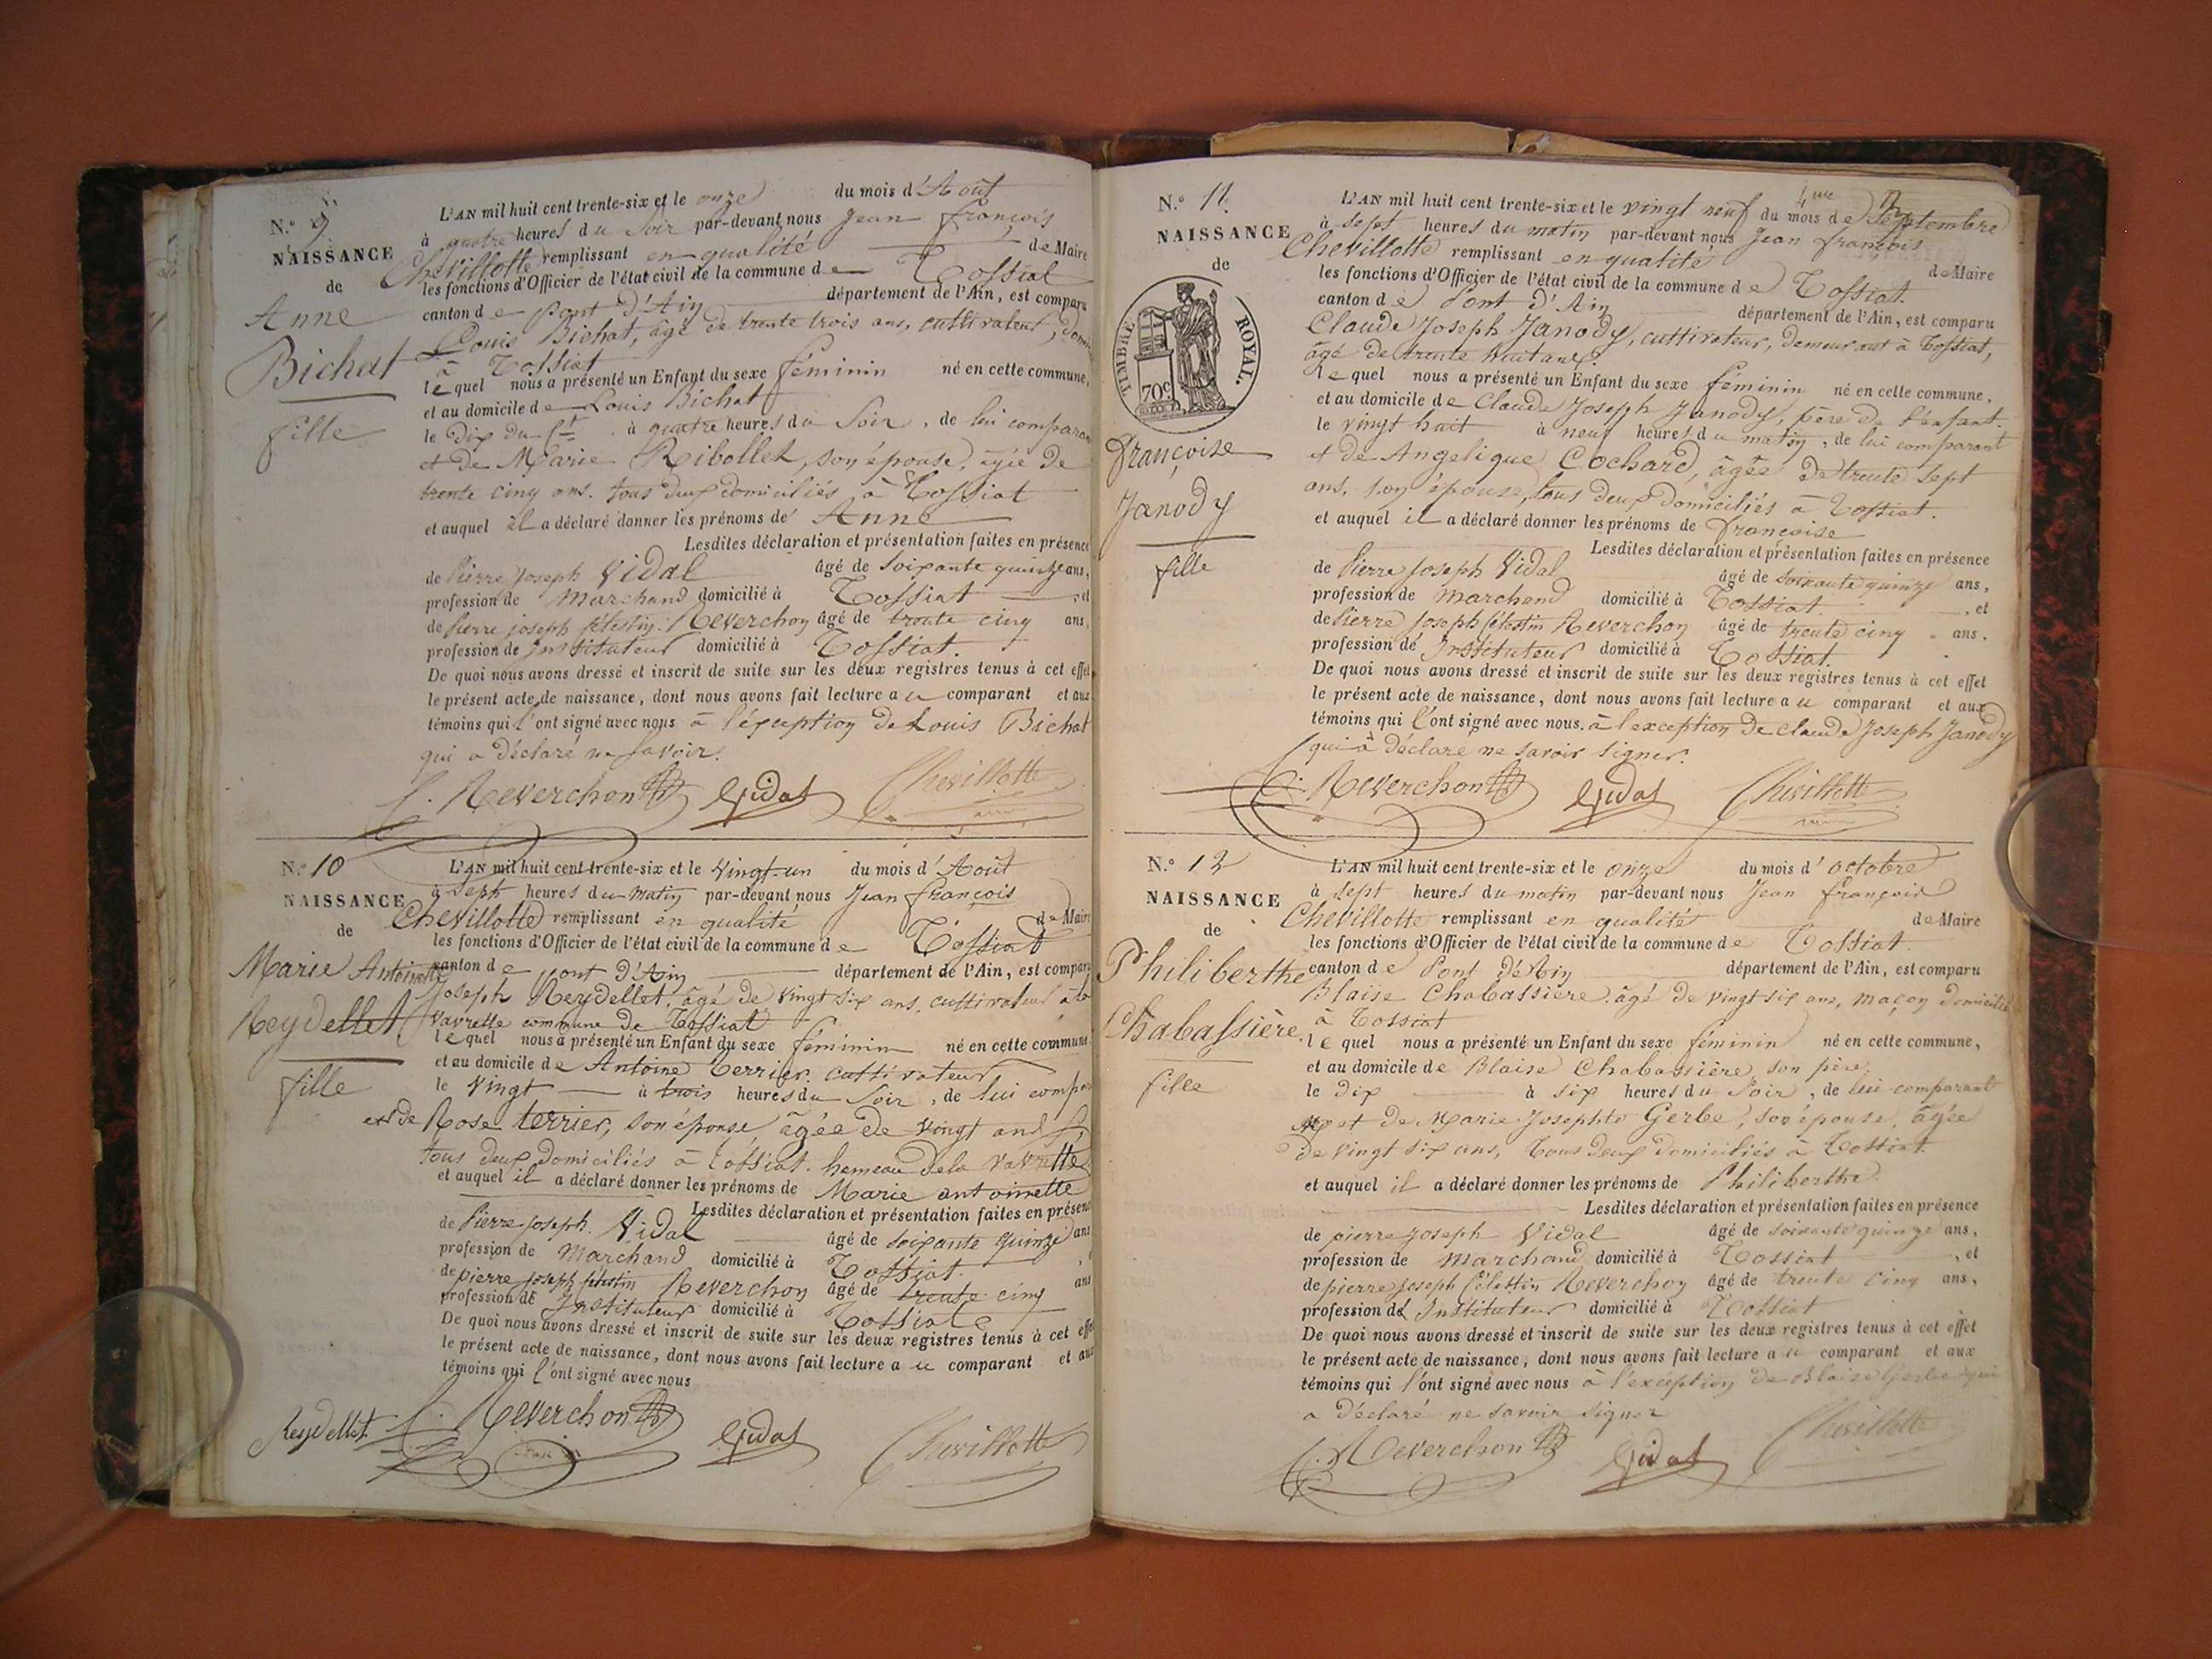 N.º 9
NAISSANCE
de
Anne
Bichat
fille
L'AN mil huit cent trente-six et le onze du mois d'Août
à quatre heures du Soir par-devant nous Jean françois
Chevillotte remplissant en qualité de Maire
les fonctions d'Officier de l'état civil de la commune de Tossiat
canton de Pont d'Ain département de l'Ain, est comparu
Louis Bichat, âgé de trente trois ans, cultivateur,
à Tossiat
lequel nous a présenté un Enfant du sexe féminin né en cette commune,
et au domicile de Louis Bichat
le Dix du ct à quatre heures du Soir, de lui comparan
et de Marie Ribollet, son épouse, âgée de
trente cinq ans. tous deux domiciliés à Tossiat
et auquel il a déclaré donner les prénoms de Anne
Lesdites déclaration et présentation faites en présence
de Pierre Joseph Vidal âgé de soixante quinze ans,
profession de Marchand domicilié à Tossiat , et
de Pierre joseph Célestin Reverchon âgé de trente cinq ans,
profession de Instituteur domicilié à Tossiat.
De quoi nous avons dressé et inscrit de suite sur les deux registres tenus à cet effet
le présent acte de naissance, dont nous avons fait lecture au comparant et aux
témoins qui l'ont signé avec nous à l'exception de Louis Bichat
qui a déclaré ne savoir.
C. Reverchon Vidal Chevillotte
N.º 10
NAISSANCE
de
Marie Antoinette
Reydellet
fille
L'AN mil huit cent trente-six et le Vingt-un du mois d'Août
à sept heures du matin par-devant nous Jean françois
Chevillotte remplissant en qualité de Maire
les fonctions d'Officier de l'état civil de la commune de Tossiat
canton de pont d'Ain département de l'Ain, est comparu
Joseph Reydellet, âgé de vingt six ans, cultivateur à la
vavrette commune de Tossiat
lequel nous a présenté un Enfant du sexe féminin né en cette commune
et au domicile de Antoine Terrier. cultivateur
le Vingt à trois heures du Soir, de lui compar
et de Rose terrier, son épouse âgée de vingt ans
tous deux domiciliés à Tossiat. hameau de la vavrette
et auquel il a déclaré donner les prénoms de Marie antoinette
Lesdites déclaration et présentation faites en présenc
de Pierre joseph. Vidal âgé de soixante quinze ans
profession de Marchand domicilié à Tossiat.
de pierre joseph Célestin Reverchon âgé de trente cinq ans
profession de Instituteur domicilié à Tossiat
De quoi nous avons dressé et inscrit de suite sur les deux registres tenus à cet effet
le présent acte de naissance, dont nous avons fait lecture au comparant et aux
témoins qui l'ont signé avec nous
Reydellet C. Reverchon Vidal Chevillotte
N.º 11.
NAISSANCE
de
TIMBRE ROYAL.
70c
françoise
Janody
fille
L'AN mil huit cent trente-six et le vingt neuf du mois de Septembre
à sept heures du matin par-devant nous Jean françois
Chevillotte remplissant en qualité de Maire
les fonctions d'Officier de l'état civil de la commune de Tossiat.
canton de Pont d'Ain département de l'Ain, est comparu
Claude Joseph Janody, cultivateur, demeurant à Tossiat,
âgé de trente huit ans.
lequel nous a présenté un Enfant du sexe féminin né en cette commune,
et au domicile de Claude Joseph Janody, père de l'enfant.
le vingt huit à neuf heures du matin, de lui comparant
et de Angelique Cochard, âgée de trente sept
ans, son épouse, tous deux domiciliés à Tossiat.
et auquel il a déclaré donner les prénoms de françoise
Lesdites déclaration et présentation faites en présence
de Pierre Joseph Vidal âgé de soixante quinze ans,
profession de marchand domicilié à Tossiat. , et
de Pierre Joseph Célestin Reverchon âgé de trente cinq ans,
profession de Instituteur domicilié à Tossiat.
De quoi nous avons dressé et inscrit de suite sur les deux registres tenus à cet effet
le présent acte de naissance, dont nous avons fait lecture au comparant et aux
témoins qui l'ont signé avec nous. à l'exception de claude Joseph Janody
qui à déclaré ne savoir signer.
C. Reverchon Vidal Chevillotte
N.º 12
NAISSANCE
de
Philiberthe
Chabassière.
fille
L'AN mil huit cent trente-six et le onze du mois d'octobre
à sept heures du matin par-devant nous Jean françois
Chevillotte remplissant en qualité de Maire
les fonctions d'Officier de l'état civil de la commune de Tossiat.
canton de Pont d'Ain département de l'Ain, est comparu
Blaise Chabassière. âgé de vingt six ans, maçon domicilié
à Tossiat
lequel nous a présenté un Enfant du sexe féminin né en cette commune,
et au domicile de Blaise Chabassière, son père.
le Dix à six heures du Soir, de lui comparant
et de Marie Josephte Gerbe, son épouse, âgée
de vingt six ans, Tous deux domiciliés à Tossiat.
et auquel il a déclaré donner les prénoms de Philiberthe.
Lesdites déclaration et présentation faites en présence
de pierre joseph Vidal âgé de soixante quinze ans,
profession de marchand domicilié à Tossiat , et
de pierre Joseph Célestin Reverchon âgé de trente cinq ans,
profession de Instituteur domicilié à Tossiat
De quoi nous avons dressé et inscrit de suite sur les deux registres tenus à cet effet
le présent acte de naissance, dont nous avons fait lecture au comparant et aux
témoins qui l'ont signé avec nous à l'exception de Blaise Gerbe qui
a déclaré ne savoir signer
C. Reverchon Vidal Chevillotte